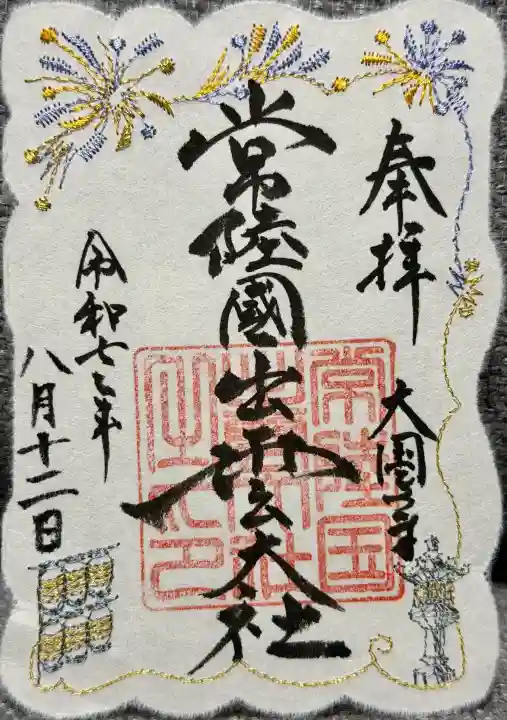 奉拝
大國みこと
常陸國出雲大社
常陸国
出雲大社
之印
令和七年
八月十二日